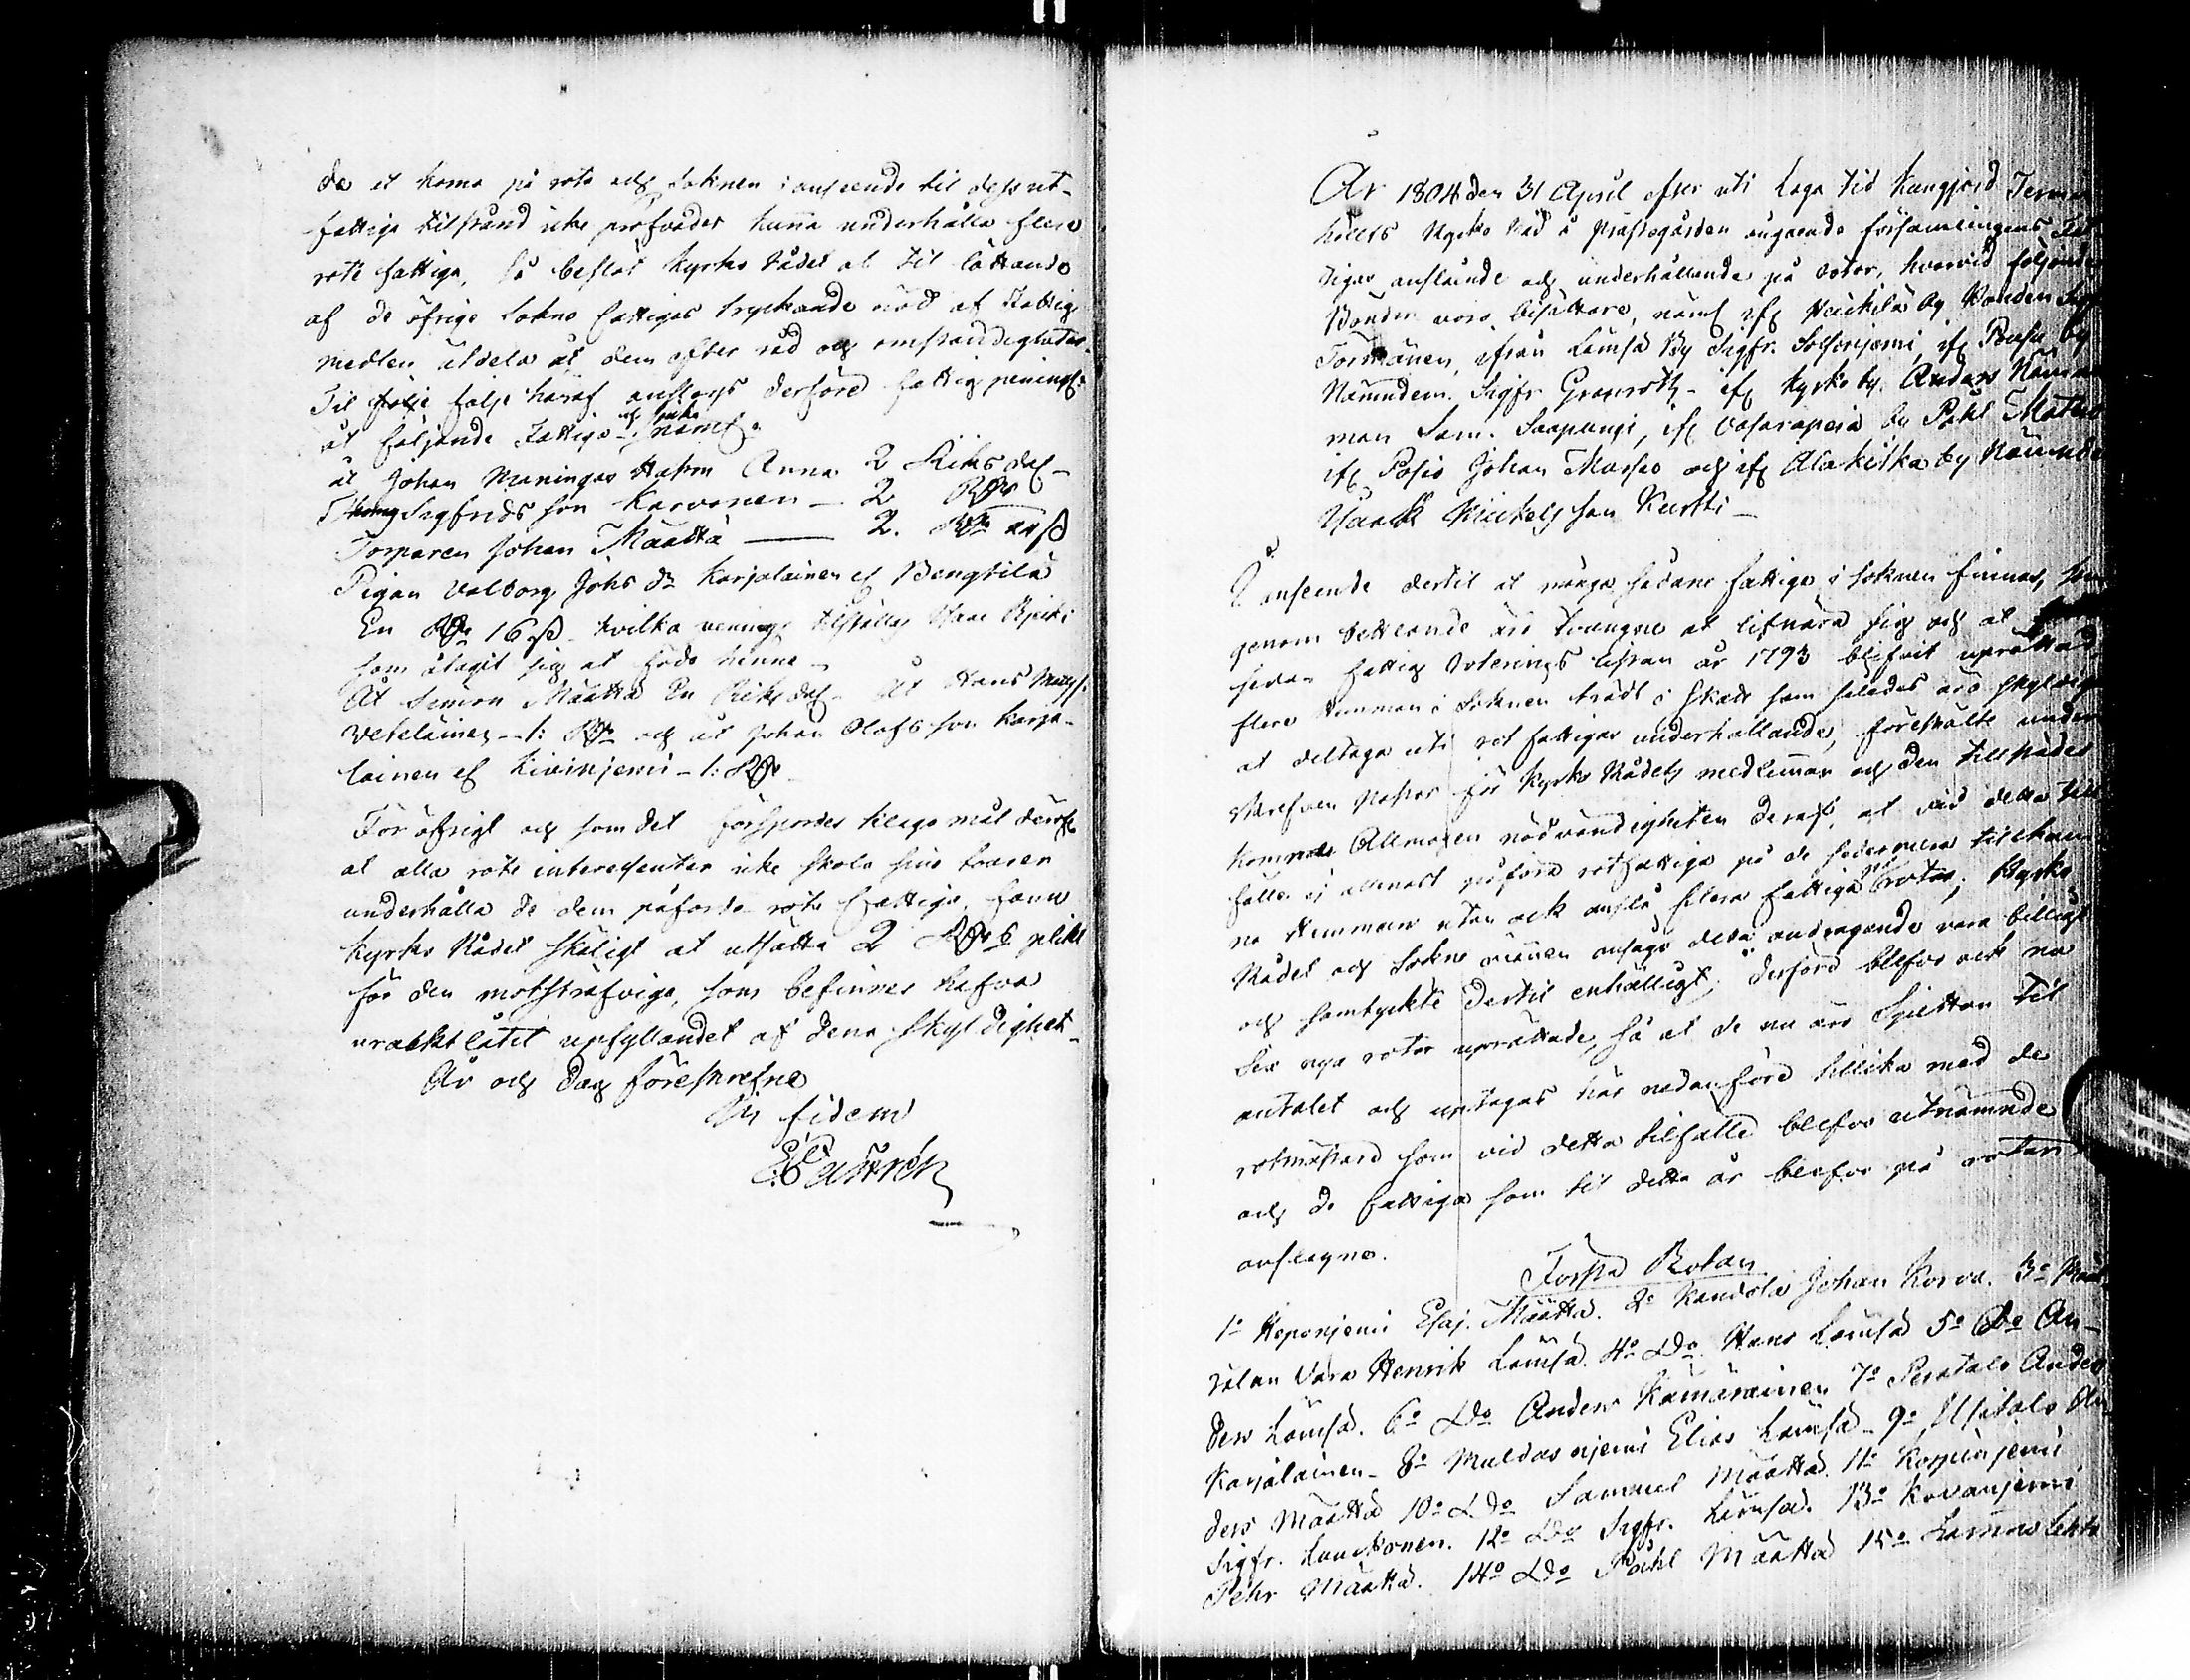 de at koma på rota och soknen i anseende til dess ut-
fattiga tilstånd icke pröfvades kunna underhålla flera
rote fattiga, så beslöt Kyrko Rådet at til lättande
af de öfriga Sokne fattigas tryckande nöd af Fattig
medlen utdela åt dem efter råd och omständigheter.
Til följe häraf anslogs derföre fattig peningr
åt följande Fattiga och sjuka näml:
åt Johan Maningas Hustru Anna 2 Riksdal-
Sigfridsson Karvonen — 2 Rdr
Torparen Johan Määttä — 2. Rdr
Pigan Valborg Johs dr Karjalainen af Bengtilä
En Rdr 16 ß hvilka penningr tilställes
som åtagit sig at föda henne —
Åt Simon Määttä En Riksdal- Åt Hans Matss:
Veteläinen — 1: Rdr och åt Johan Olofsson Karja-
lainen af Kivinjemi — 1: Rdr
För öfrigt och som det försports klagomål deröfver
at alla rote interessenter icke skola sins emellan
underhålla de dem påförde rote fattiga, fann
Kyrko Rådet skäligt at utsätta 2 Rdr plikt
för den motsträfvige, som befinnes hafva
uraktlåtit upfyllandet af dena skyldighet-
År och Dag föreskrefne
In fidem
År 1804 den 31 April efter uti laga tid kungjord Termin
hölts Kyrko Råd i Prästegården angående församlingens Fat-
tigas anslående och underhållande på rotar, hvarvid följande
Bönder voro bisittare, näml ifr Heikilä by Bonden Sigf
Tormänen, ifrån Lämsä By Sigfr. ifr Posio by
Nämndem. Sigfr Granroth — ifr Kyrko by. Anders Näman
man Sam. Saapungi, ifr Vasaraperä by Påhl Mätt
ifr Posio Johan och ifr Alakitka by Nämnde
Isaak Mickelsson Kurtti —
I anseende dertil at många sådane fattiga i soknen finnas, som
genom bettlande äro tvungne at lifnära sig och at
sedan Fattig Roterings listan år 1793 blifvit uprättad
flere Hemman i Soknen trädt i Skatt som således äro skyldige
at deltaga uti rot fattigas underhållande, föreställte under
skrefven Pastor för Kyrko Rådets medlemar och den tillstädes
komne Allmogen nödvändigheten deraf, at vid detta till
fälle ej allenast påföra rotfattiga på de sedermera tilkom
na Hemman utan ock anslå flera fattiga på rotar; Kyrko
Rådet och Sokne männen ansågo detta andragande vara billigt
och samtyckte dertil enhälligt; derföre blefvo ock nu
sex nya rotar uprättade, så at de nu äro Sjutton til
antalet och uptagas här nedanföre tillika med de
rotmästare som vid detta tilfälle blefvo utnämnde
och de fattiga som til detta år blefvo på rotan
anslagne.
Första Rotan
1o Heponjemi Esaj. Määttä. 2o Kandola Johan Korva. 3o
Vara Henrik Lämsä. 4o Do Hans Lämsä 5o Do An-
ders Lämsä. 6o Do Anders Kämäräinen 7o Peratalo Anders
Karjalainen — 8o njemi Elias Lämsä — 9o Usitalo An-
ders Määttä 10o Do Samuel Määttä. 11o njemi
Sigfr. Luuckonen. 12o Do Sigfr. Lämsä. 13o Kovanjemi
Pehr Määttä. 14o Do Påhl Määttä 15o